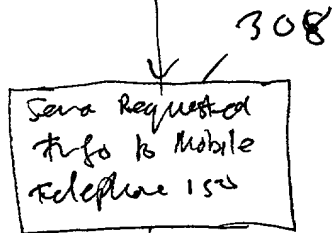 308
Send Requested
Info to Mobile
Telephone 150